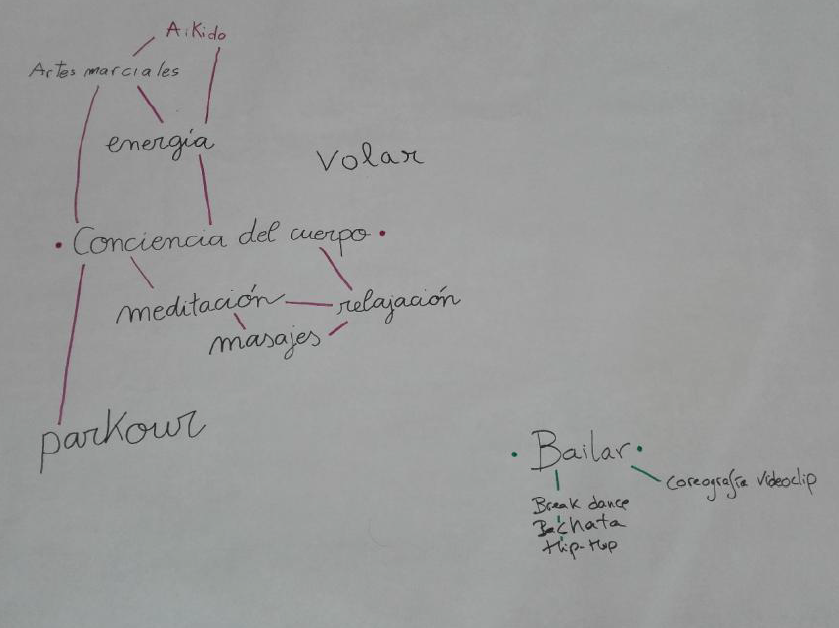 Aikido
Artes marciales
energía
Volar
• Conciencia del cuerpo •
meditación
relajación
masajes
parkour
• Bailar •
Coreografía Videoclip
Break dance
Bachata
Hip-Hop